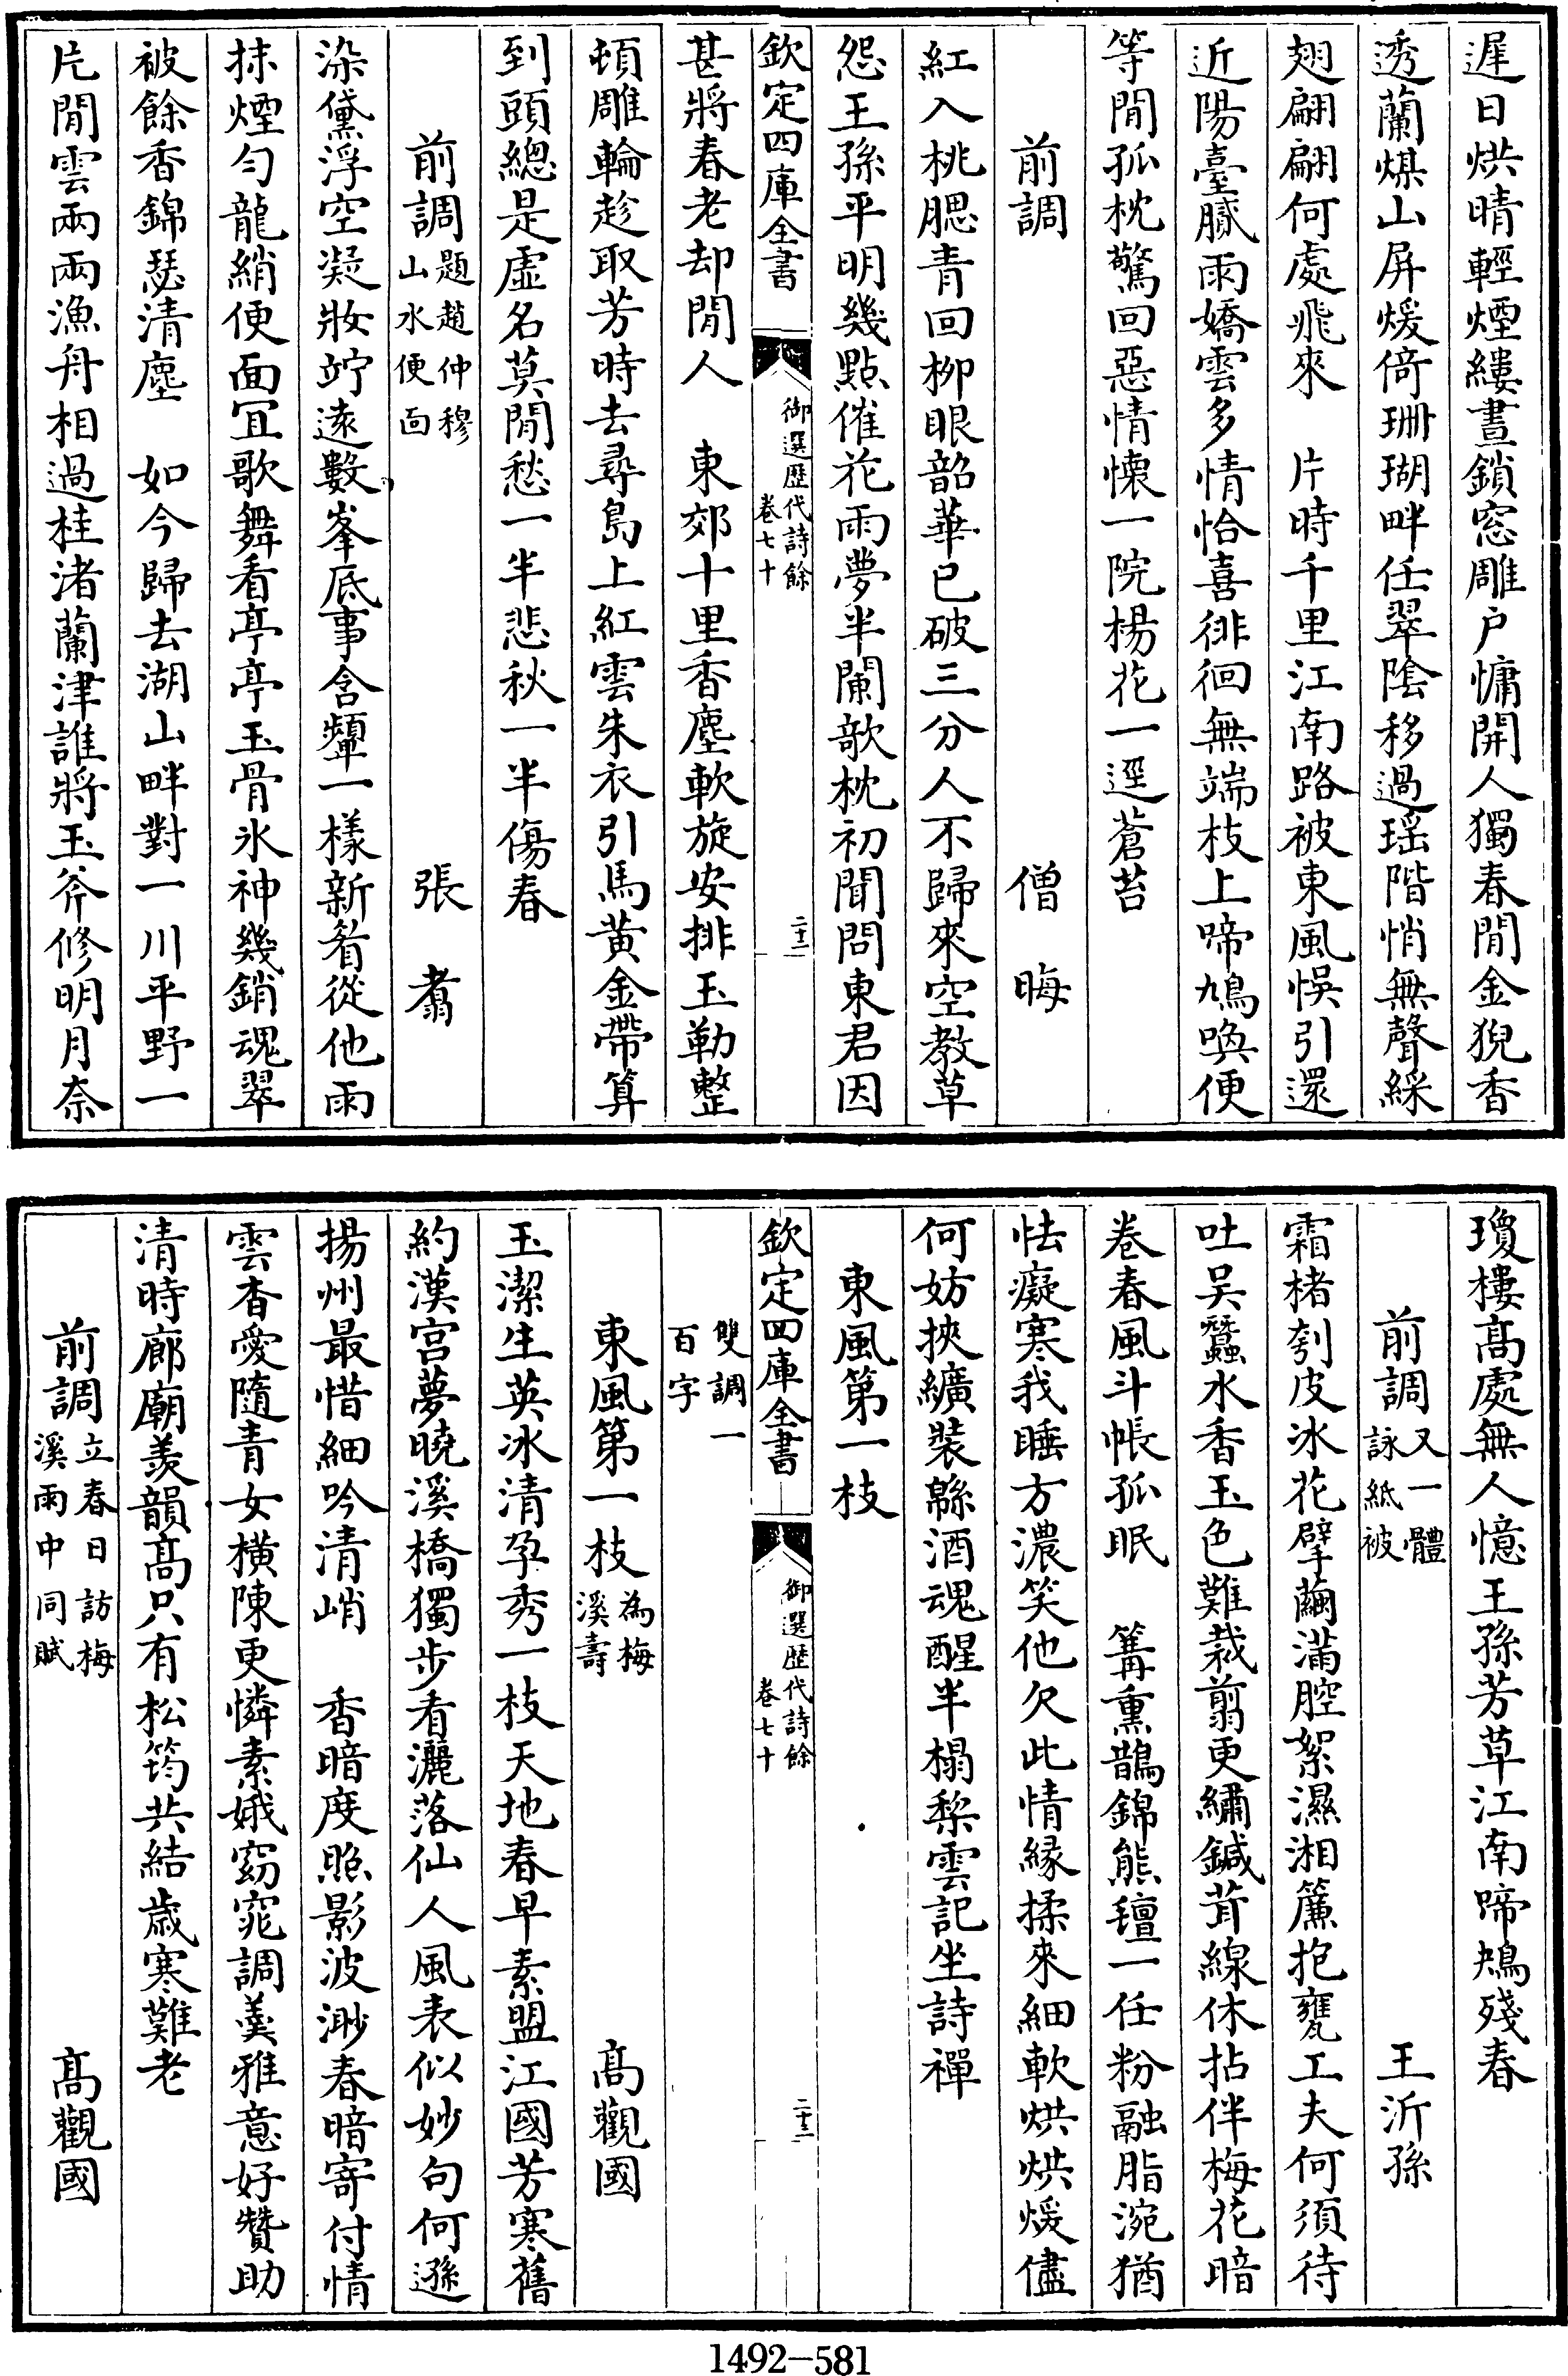 遲日烘晴輕煙縷晝鎖窓雕户慵開人獨春閒金猊香
透蘭煤山屏煖倚珊瑚畔任翠陰移過瑶階悄無聲綵
翅翩翩何處飛來　片時千里江南路被東風悞引還
近陽臺膩雨嬌雲多情恰喜徘徊無端枝上啼鳩喚便
等閒孤枕驚回惡情懐一院楊花一逕蒼苔
前調　僧晦
紅入桃腮青回柳眼韶華已破三分人不歸來空教草
怨王孫平明幾點催花雨夢半闌欹枕初聞問東君因
欽定四庫全書　御選歴代詩餘　卷七十　二十二
甚將春老却閒人　東郊十里香塵軟旋安排玉勒整
頓雕輪趁取芳時去尋島上紅雲朱衣引馬黄金帶算
到頭總是虛名莫閒愁一半悲秋一半傷春
前調題趙仲穆山水便面　張翥
染黛浮空凝妝竚遠數峯底事含顰一樣新眉從他雨
抹煙勻龍綃便面宜歌舞看亭亭玉骨氷神幾銷魂翠
被餘香錦瑟清塵　如今歸去湖山畔對一川平野一
片閒雲兩兩漁舟相過桂渚蘭津誰將玉斧修明月奈
瓊樓髙處無人憶王孫芳草江南啼鴂殘春
前調又一體詠紙被　王沂孫
霜楮刳皮冰花擘繭滿腔絮濕湘簾抱甕工夫何須待
吐吴蠶水香玉色難裁翦更繡鍼茸線休拈伴梅花暗
卷春風斗帳孤眠　篝熏鵲錦熊氊一任粉融脂涴猶
怯癡寒我睡方濃笑他欠此情緣揉來細軟烘烘煖儘
何妨挾纊裝緜酒魂醒半榻棃雲記坐詩禪
東風第一枝
欽定四庫全書　御選歴代詩餘　卷七十　二十三
雙調一百字
東風第一枝為梅溪壽　髙觀國
玉潔生英冰清孕秀一枝天地春早素盟江國芳寒舊
約漢宫夢曉溪橋獨步看灑落仙人風表似妙句何遜
揚州最惜細吟清峭　香暗度照影波渺春暗寄付情
雲杳愛隨青女橫陳更憐素娥窈窕調羹雅意好贊助
清時廊廟羨韻髙只有松筠共結歲寒難老
前調立春日訪梅溪雨中同賦　髙觀國
1492—581